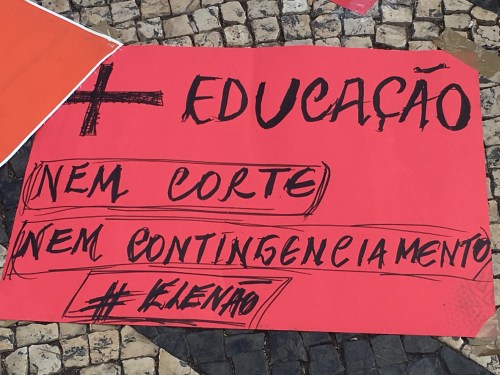 + EDUCAÇÃO
NEM CORTE
NEM CONTINGENCIAMENTO
# ELENÃO